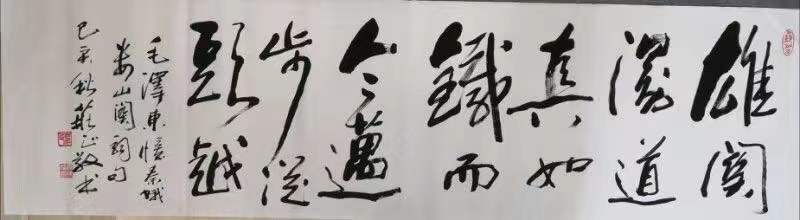 雄關
漫道
真如
鐵而
今邁
步從
頭越
毛澤東憶秦娥
婁山關詞句
己亥秋